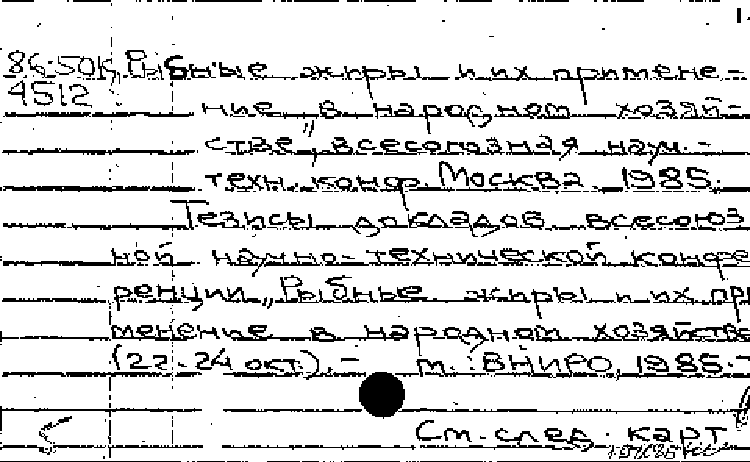 86-50K „Рыбные жиры и их примене-
4512 ние в народном хозяй-
стве", всесоюзная науч.-
техн. конф. Москва. 1985.
Тезисы докладов всесоюз
ной научно-технической конфе
ренции „Рыбные жиры и их при
менение в народном хозяйстве
(22-24 окт.). - М.: ВНИРО, 1985.-
См. след. карт.